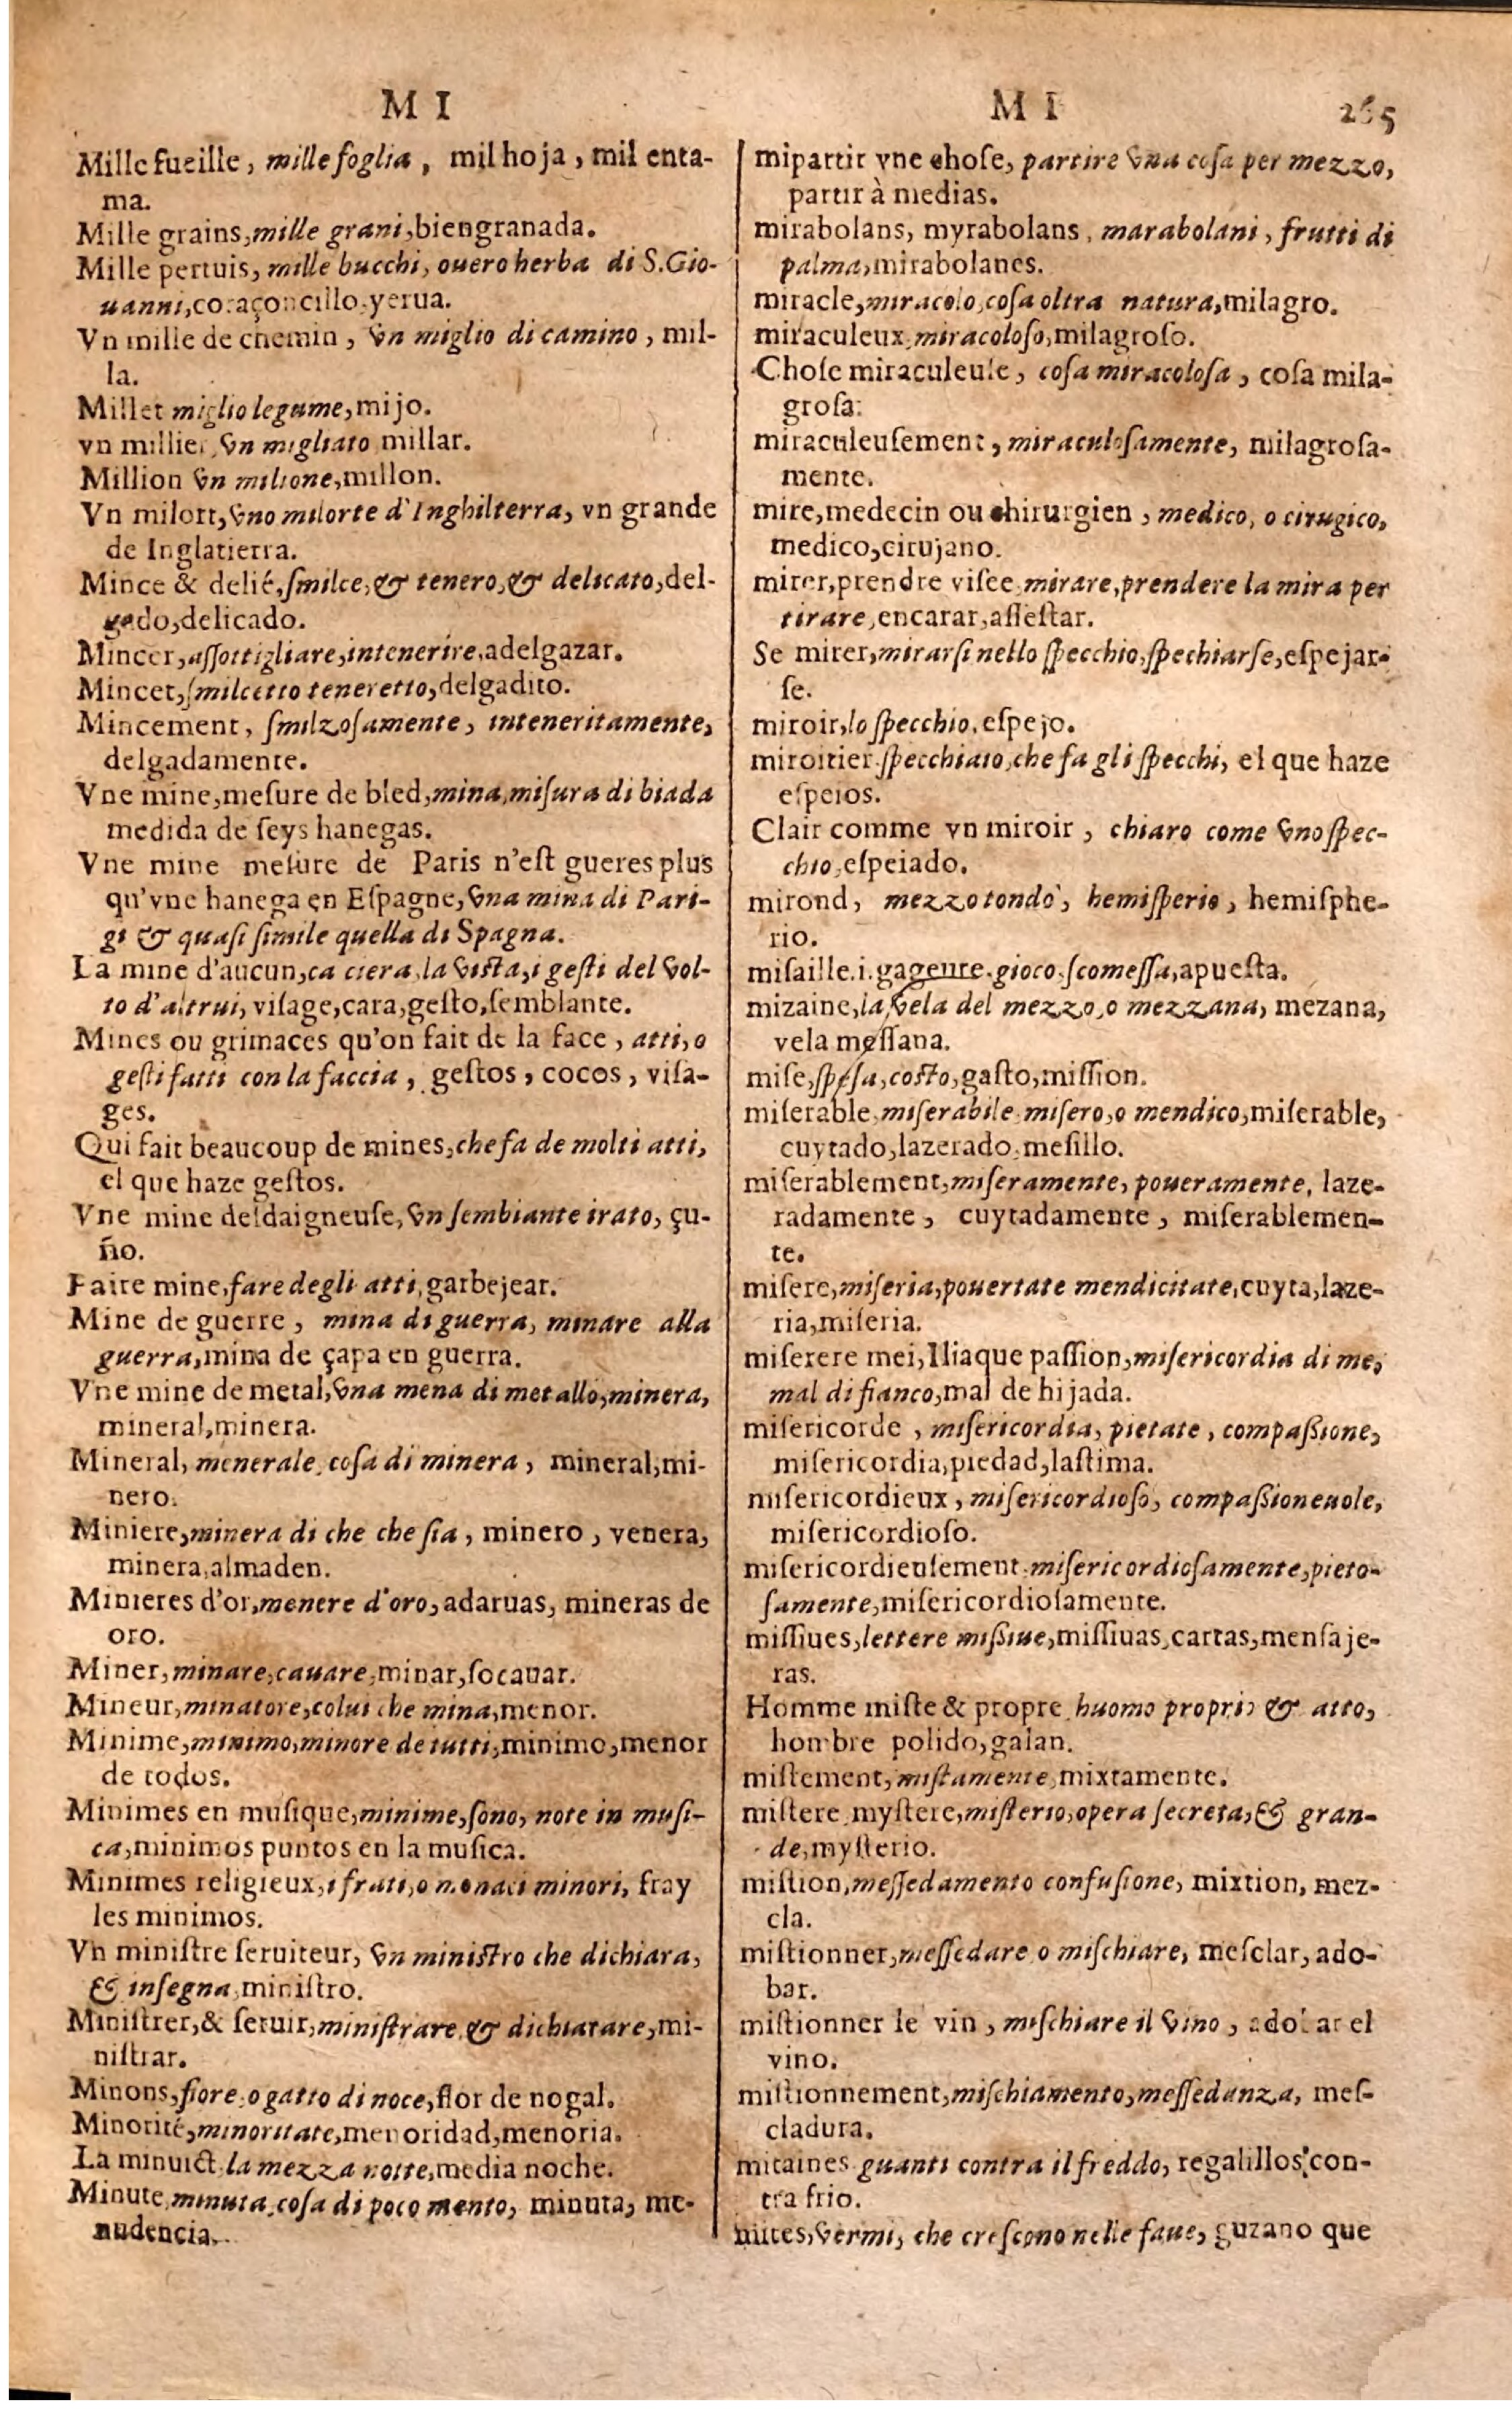 M I
Mille fueille, mille foglia, mil hoja, mil enta-
ma.
Mille grains, mille grani, biengranada.
Mille pertuis, mille bucchi, ouero herba di S. Gio-
uanni, coraçoncillo yerua.
Vn mille de chemin, vn miglio di camino, mil-
la.
Millet miglio legume, mijo.
vn millier, vn migliato millar.
Million vn milione, millon.
Vn milort, vno milorte d'Inghilterra, vn grande
de Inglatierra.
Mince & delié, ſmilce, & tenero, & delicato, del-
gado, delicado.
Mincer, aſſottigliare, intenerire, adelgazar.
Mincet, ſmilcetto teneretto, delgadito.
Mincement, ſmilzoſamente, inteneritamente,
delgadamente.
Vne mine, meſure de bled, mina, miſura di biada
medida de ſeys hanegas.
Vne mine meſure de Paris n'eſt gueres plus
qu'vne hanega en Eſpagne, vna mina di Pari-
gi & quaſi ſimile quella di Spagna.
La mine d'aucun, ca ciera, la viſta, i geſti del vol-
to d'altrui, viſage, cara, geſto, ſemblante.
Mines ou grimaces qu'on fait de la face, atti, o
geſti fatti con la faccia, geſtos, cocos, viſa-
ges.
Qui fait beaucoup de mines, che fa de molti atti,
el que haze geſtos.
Vne mine deſdaigneuſe, vn ſembiante irato, çu-
ño.
Faire mine, fare degli atti, garbejear.
Mine de guerre, mina di guerra, minare alla
guerra, mina de çapa en guerra.
Vne mine de metal, vna mena di metallo, minera,
mineral, minera.
Mineral, menerale, coſa di minera, mineral, mi-
nero.
Miniere, minera di che che ſia, minero, venera,
minera, almaden.
Minieres d'or, menere d'oro, adaruas, mineras de
oro.
Miner, minare, cauare, minar, ſocauar.
Mineur, minatore, colui che mina, menor.
Minime, minimo, minore de tutti, minimo, menor
de todos.
Minimes en muſique, minime, ſono, note in muſi-
ca, minimos puntos en la muſica.
Minimes religieux, i frati, o monaci minori, fray
les minimos.
Vn miniſtre ſeruiteur, vn miniſtro che dichiara,
& inſegna, miniſtro.
Miniſtrer, & ſeruir, miniſtrare, & dichiarare, mi-
niſtrar.
Minons, fiore, o gatto di noce, flor de nogal.
Minorité, minoritate, menoridad, menoria.
La minuict, la mezza notte, media noche.
Minute, minuta, coſa di poco mento, minuta, me-
nudencia.
M I 265
mipartir vne choſe, partire vna coſa per mezzo,
partir à medias.
mirabolans, myrabolans, marabolani, frutti di
palma, mirabolanes.
miracle, miracolo, coſa oltra natura, milagro.
miraculeux, miracoloſo, milagroſo.
Choſe miraculeuſe, coſa miracoloſa, coſa mila-
groſa.
miraculeuſement, miraculoſamente, milagroſa-
mente.
mire, medecin ou chirurgien, medico, o cirugico,
medico, cirujano.
mirer, prendre viſee, mirare, prendere la mira per
tirare, encarar, aſſeſtar.
Se mirer, mirarſi nello ſpecchio, ſpechiarſe, eſpejar-
ſe.
miroir, lo ſpecchio, eſpejo.
miroitier, ſpecchiaio, che fa gli ſpecchi, el que haze
eſpeios.
Clair comme vn miroir, chiaro come vno ſpec-
chio, eſpeiado.
mirond, mezzo tondo, hemiſperio, hemiſphe-
rio.
miſaille. i. gageure. gioco. ſcomeſſa, apueſta.
mizaine, la vela del mezzo, o mezzana, mezana,
vela meſſana.
miſe, ſpeſa, coſto, gaſto, miſſion.
miſerable, miſerabile, miſero, o mendico, miſerable,
cuytado, lazerado, meſillo.
miſerablement, miſeramente, poueramente, laze-
radamente, cuytadamente, miſerablemen-
te.
miſere, miſeria, pouertate mendicitate, cuyta, laze-
ria, miſeria.
miſerere mei, Iliaque paſſion, miſericordia di me,
mal di fianco, mal de hijada.
miſericorde, miſericordia, pietate, compaſſione,
miſericordia, piedad, laſtima.
miſericordieux, miſericordioſo, compaſſioneuole,
miſericordioſo.
miſericordieuſement, miſericordioſamente, pieto-
ſamente, miſericordioſamente.
miſſiues, lettere miſſiue, miſſiuas, cartas, menſaje-
ras.
Homme miſte & propre, huomo proprio & atto,
hombre polido, galan.
miſtement, miſtamente, mixtamente.
miſtere, myſtere, miſterio, opera ſecreta, & gran-
de, myſterio.
miſtion, meſſedamento confuſione, mixtion, mez-
cla.
miſtionner, meſſedare o miſchiare, meſclar, ado-
bar.
miſtionner le vin, miſchiare il vino, adobar el
vino.
miſtionnement, miſchiamento, meſſedanza, meſ-
cladura.
mitaines guanti contra il freddo, regalillos con-
tra frio.
mites, vermi, che creſcono nelle faue, guzano que